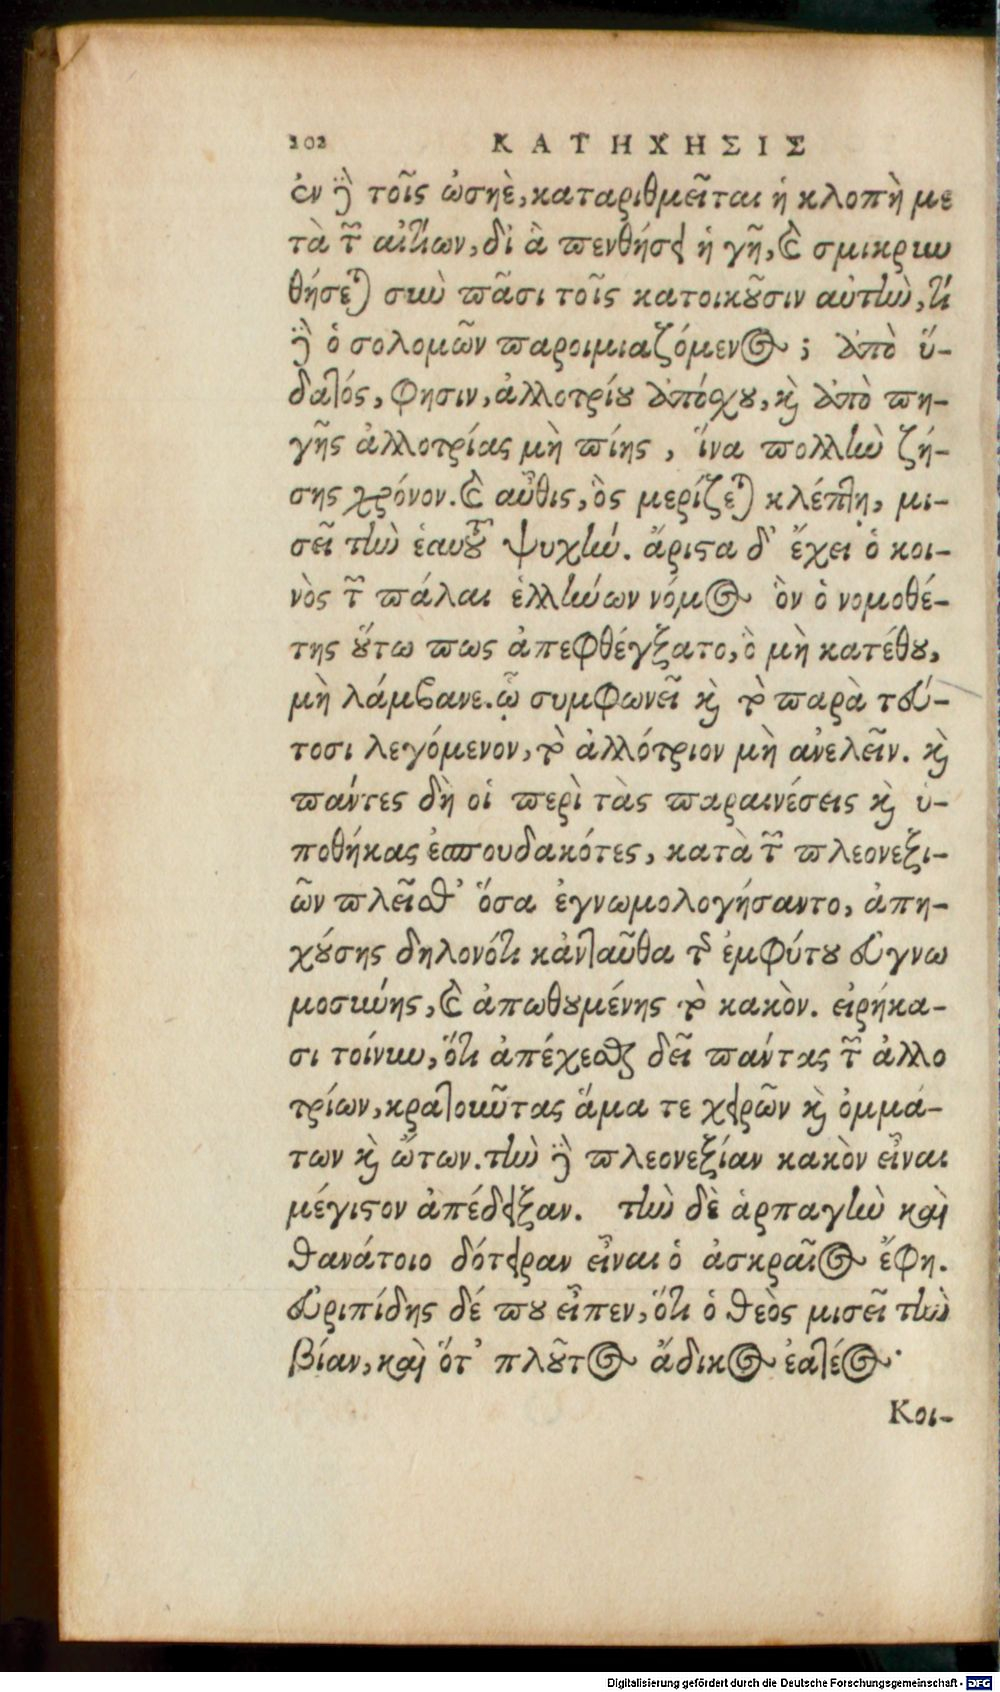 202 ΚΑΤΗΧΗΣΙΣ
ἐν γὰρ τοῖς ὠσηὲ, καταριθμεῖται ἡ κλοπὴ με
τὰ τῶν αἰτίων, δι ἃ πενθήσει ἡ γῆ, καὶ σμικρυν
θήσεται σὺν πᾶσι τοῖς κατοικοῦσιν αὐτὴν, τί
γὰρ ὁ σολομῶν παροιμιαζόμενος; ἀπὸ ὕ-
δατός, φησιν, ἀλλοτρίου ἀπόσχου, καὶ ἀπὸ πη-
γῆς ἀλλοτρίας μὴ πίῃς, ἵνα πολλὺν ζή-
σῃς χρόνον. καὶ αὖθις, ὃς μερίζεται κλέπτῃ, μι-
σεῖ τὴν ἑαυτοῦ ψυχήν. ἄριστα δ' ἔχει ὁ κοι-
νὸς τῶν πάλαι ἑλλήνων νόμος ὃν ὁ νομοθέ-
της οὕτω πως ἀπεφθέγξατο, ὃ μὴ κατέθου,
μὴ λάμβανε. ᾧ συμφωνεῖ καὶ τὸ παρὰ τού-
τοισι λεγόμενον, τὸ ἀλλότριον μὴ ἀνελεῖν. καὶ
πάντες δὴ οἱ περὶ τὰς παραινέσεις καὶ ὑ-
ποθήκας ἐσπουδακότες, κατὰ τῶν πλεονεξι-
ῶν πλεῖσθ' ὅσα ἐγνωμολογήσαντο, ἀπη-
χούσης δηλονότι κἀνταῦθα τῆς ἐμφύτου εὐγνω
μοσύνης, καὶ ἀπωθουμένης τὸ κακὸν. εἰρήκα-
σι τοίνυν, ὅτι ἀπέχεσθαι δεῖ πάντας τῶν ἀλλο
τρίων, κρατοῦντας ἅμα τε χειρῶν καὶ ὀμμά-
των καὶ ὤτων. τὴν γὰρ πλεονεξίαν κακὸν εἶναι
μέγιστον ἀπέδειξαν. τὴν δὲ ἁρπαγὴν καὶ
θανάτοιο δότειραν εἶναι ὁ ἀσκραῖος ἔφη.
Εὐριπίδης δέ που εἶπεν, ὅτι ὁ θεὸς μισεῖ τὴν
βίαν, καὶ ὅτ' πλοῦτος ἄδικος ἐατέος·
Κοι-
Digitalisierung gefördert durch die Deutsche Forschungsgemeinschaft - DFG